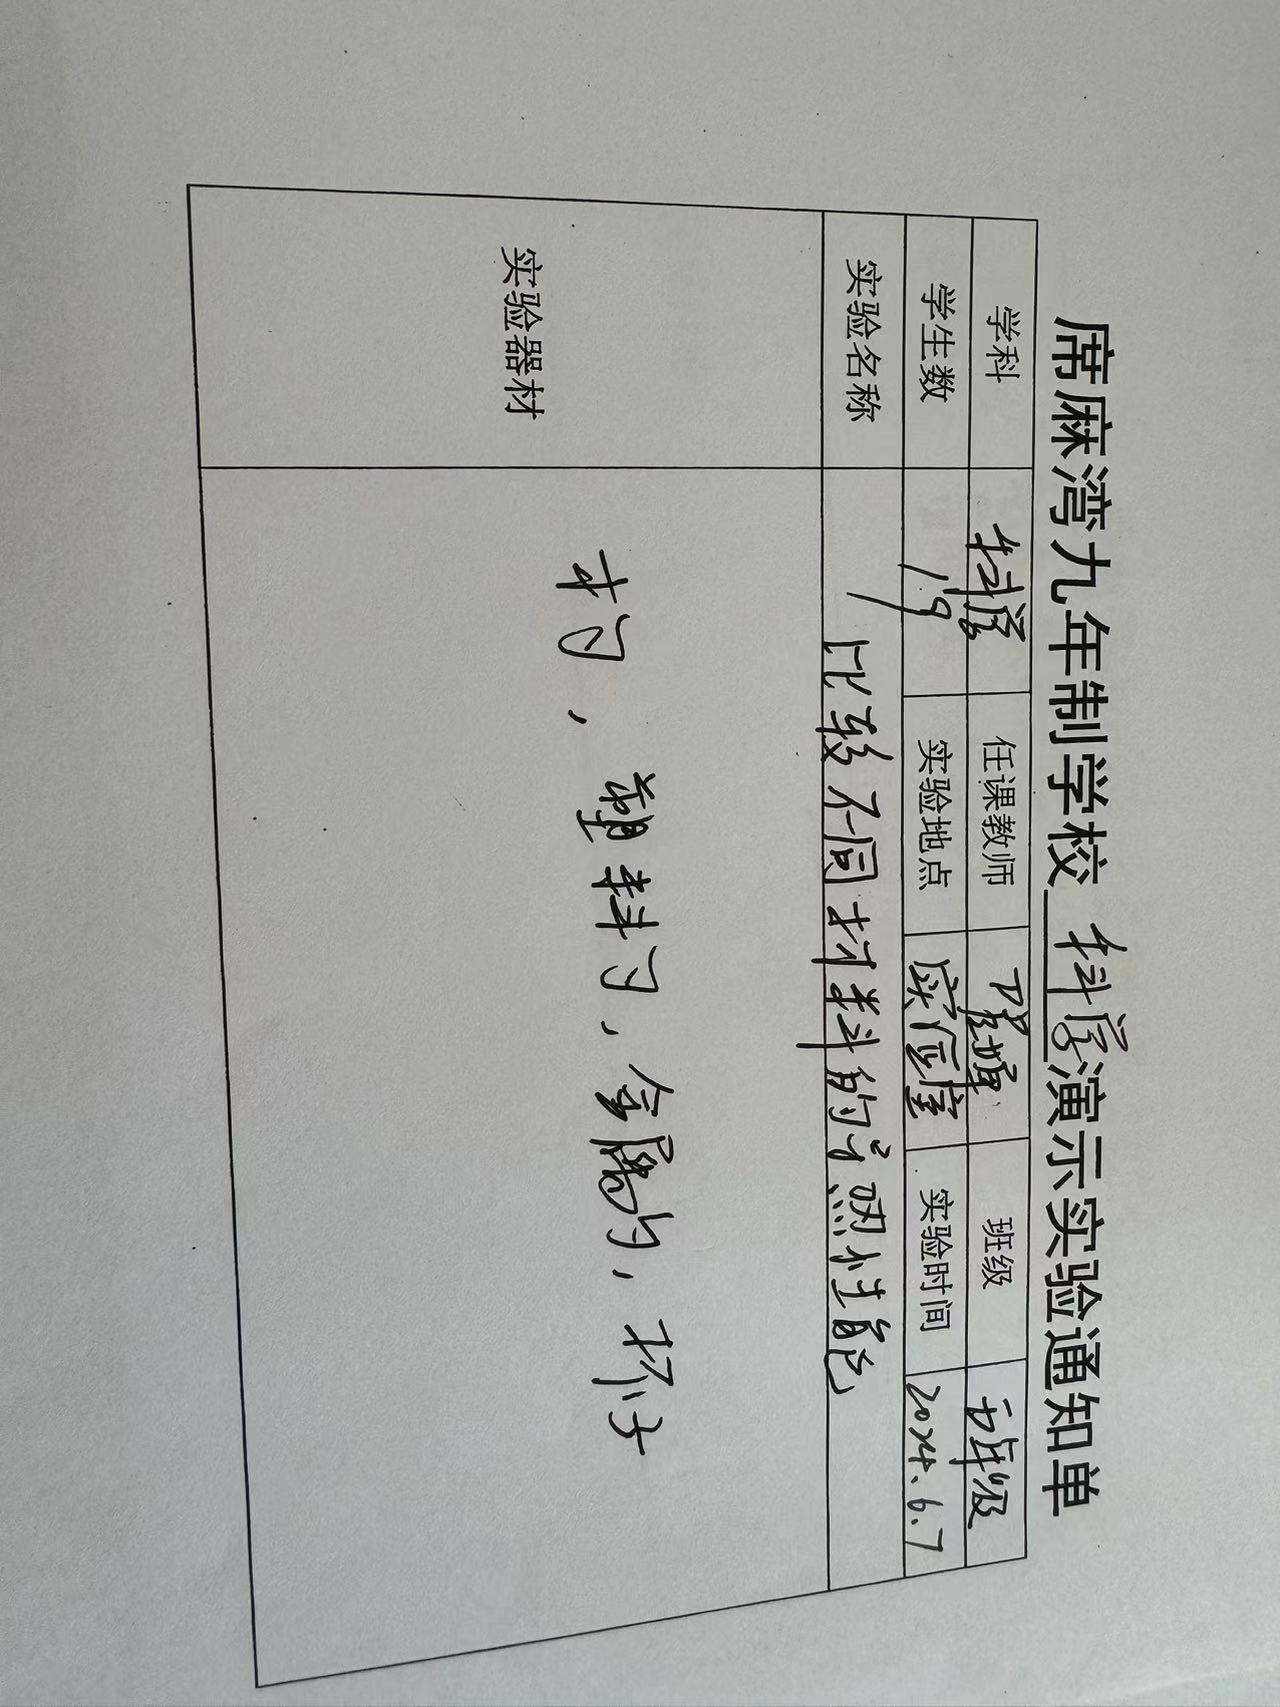 席麻湾九年制学校 科学演示实验通知单
学科 科学 任课教师 班级 五年级
学生数 19 实验地点 实验室 实验时间 2024.6.7
实验名称 比较不同材料的导热性能
实验器材 木勺，塑料勺，金属勺，杯子